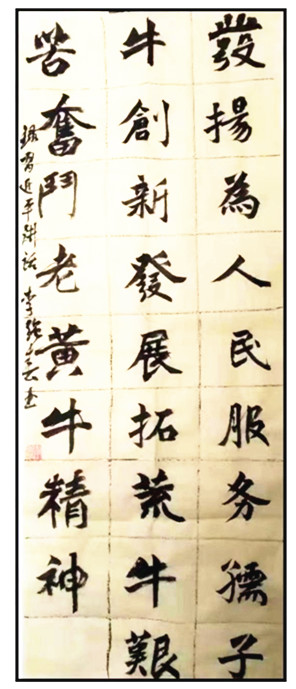 發揚為人民服务孺子
牛創新發展拓荒牛艱
苦奮鬥老黃牛精神
習近平讲话 李